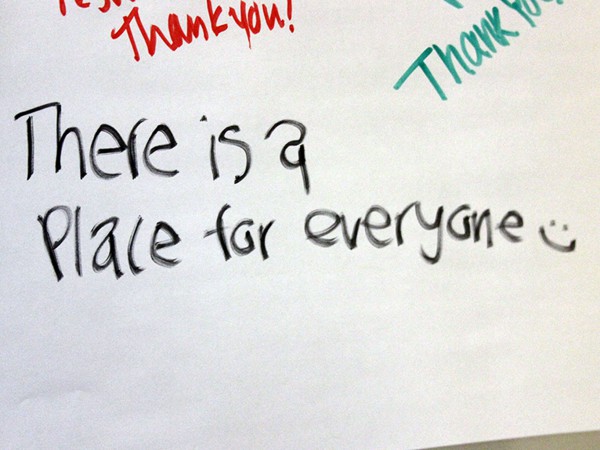 Thank you!
Thank
There is a
Place for everyone :)